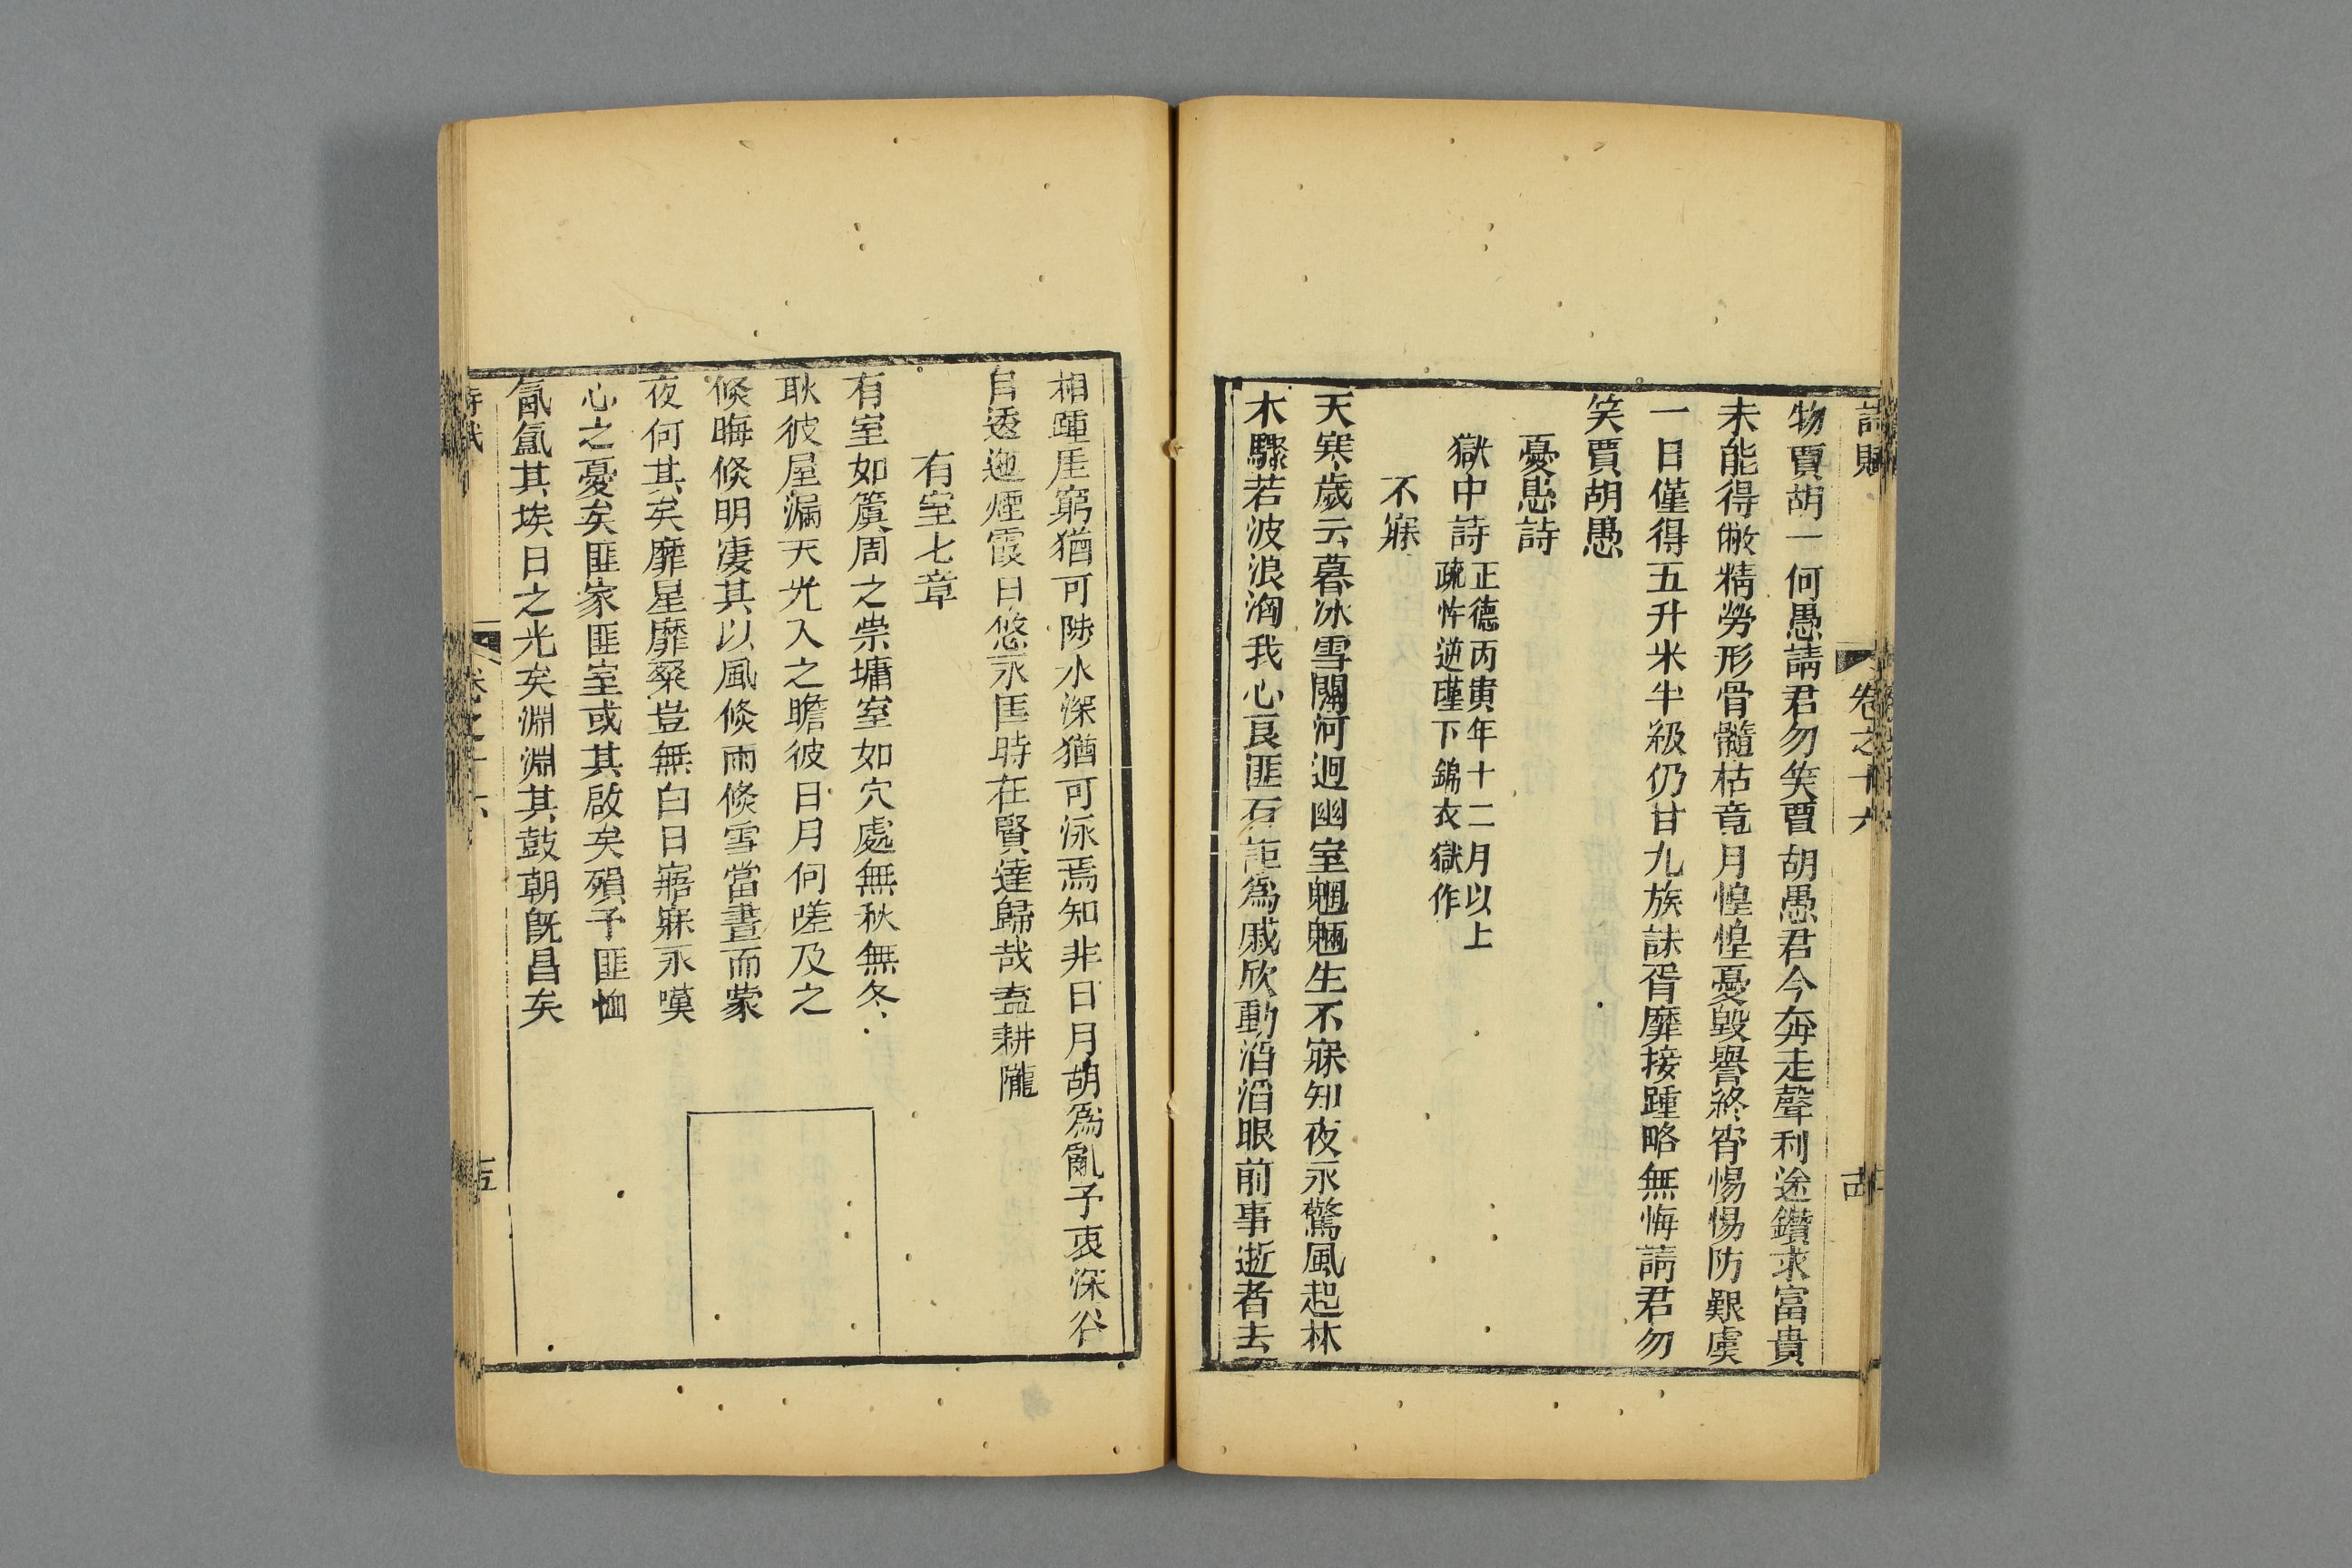 詩賦 卷之十六 十四
物賈胡一何愚請君勿笑賈胡愚君今奔走聲利途鑽求富貴
未能得敝精勞形骨髓枯竟月惶惶憂毀譽終宵惕惕防艱虞
一日僅得五升米半級仍甘九族誅胥靡接踵略無悔請君勿
笑賈胡愚
憂患詩
獄中詩
正德丙寅年十二月以上
疏忤逆瑾下錦衣獄作
不寐
天寒歲云暮冰雪關河迥幽室魍魎生不寐知夜永驚風起林
木驟若波浪洶我心良匪石詎為戚欣動滔滔眼前事逝者去
相踵厓窮猶可陟水深猶可泳焉知非日月胡為亂予衷深谷
自逶迤煙霞日悠永匡時在賢達歸哉盍耕隴
有室七章
有室如簴周之崇墉窒如穴處無秋無冬
耿彼屋漏天光入之瞻彼日月何嗟及之
倏晦倏明凄其以風倏雨倏雪當晝而蒙
夜何其矣靡星靡粲豈無白日寤寐永嘆
心之憂矣匪家匪室或其啟矣殞予匪恤
氤氳其埃日之光矣淵淵其鼓朝既昌矣
卷之十六 十五